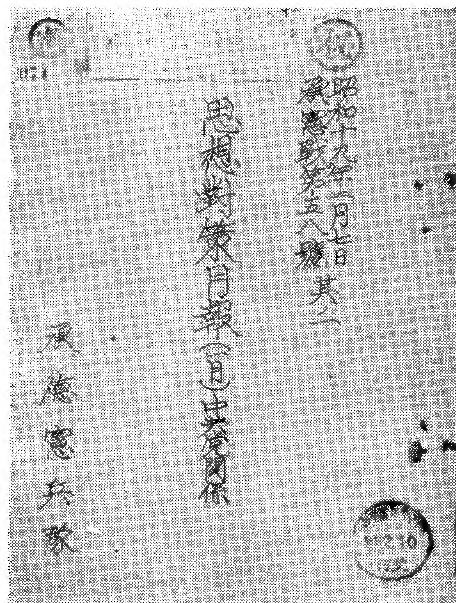 昭和十九年二月七日
承憲戰第五八號 其二
思想對策月報(一月)関係
承德憲兵隊